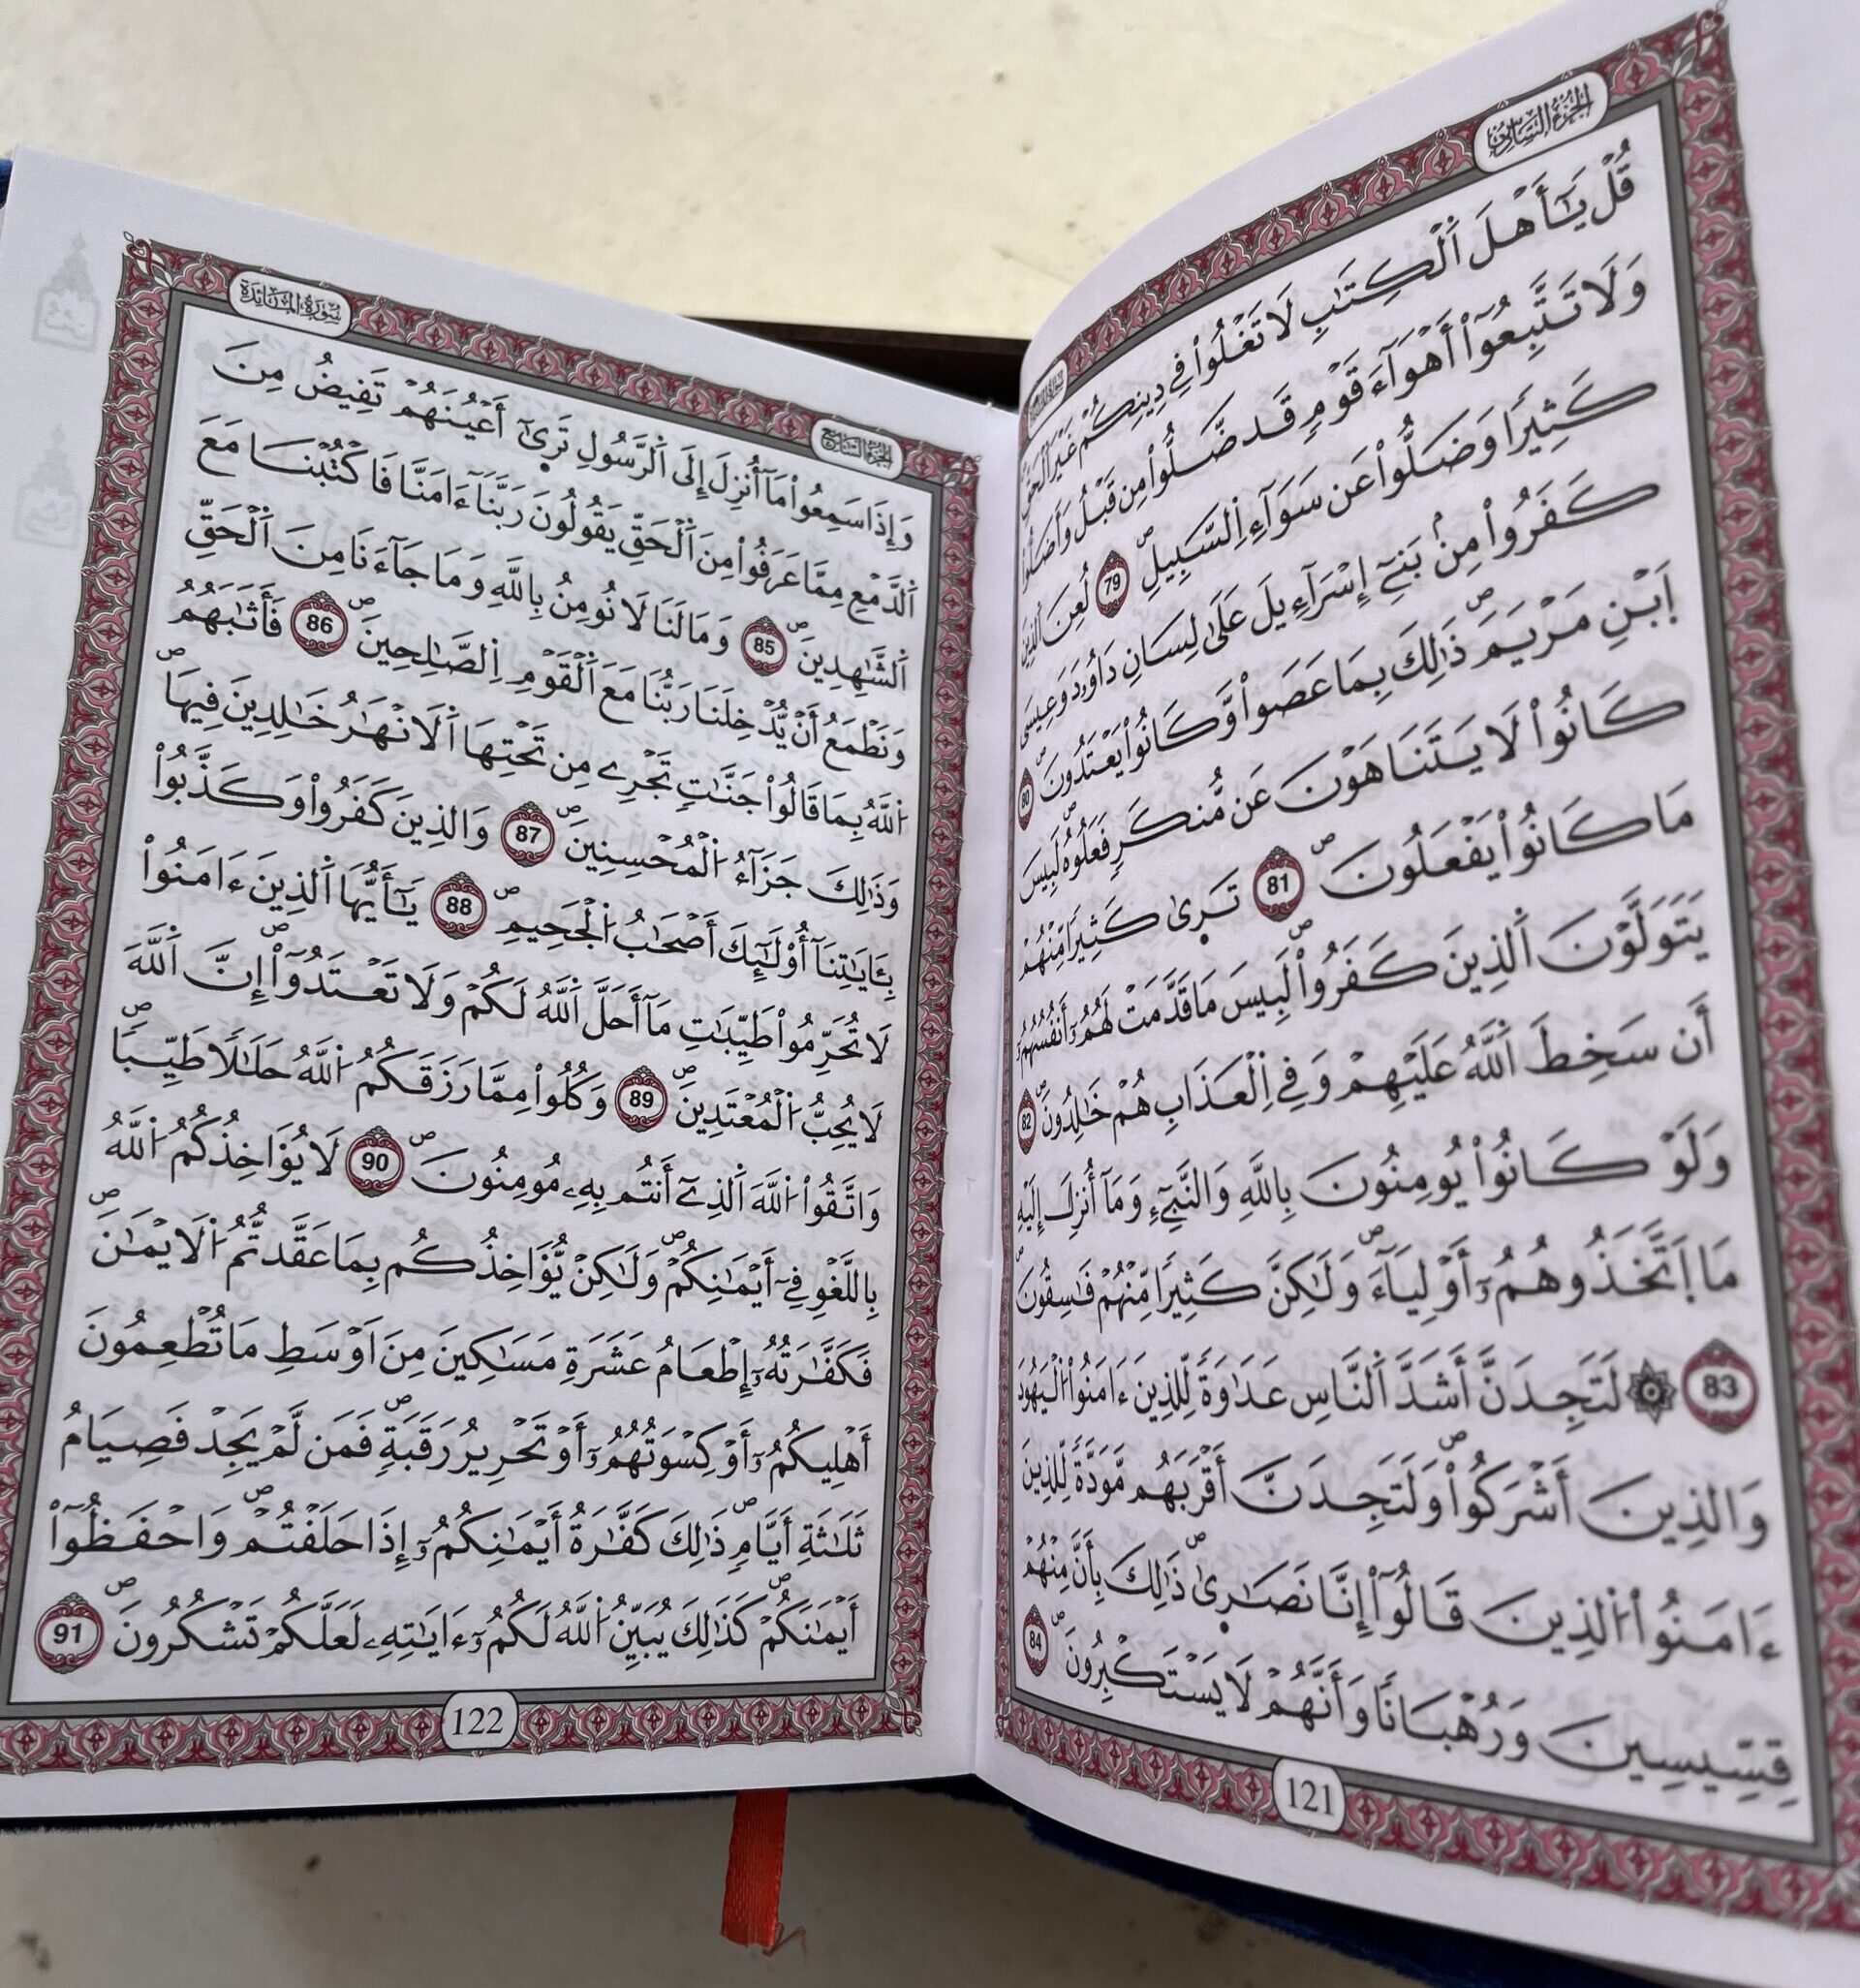 الجُزْءُ السَّادِسُ
قُلْ يَٰٓأَهْلَ اَ۬لْكِتَٰبِ لَا تَغْلُواْ فِے دِينِكُمْ غَيْرَ اَ۬لْحَقِّ
وَلَا تَتَّبِعُوٓاْ أَهْوَآءَ قَوْمٖ قَد ضَّلُّواْ مِن قَبْلُ وَأَضَلُّواْ
كَثِيراٗ وَضَلُّواْ عَن سَوَآءِ اِ۬لسَّبِيلِۖ 79 لُعِنَ اَ۬لذِينَ
كَفَرُواْ مِنۢ بَنِےٓ إِسْرَآءِيلَ عَلَىٰ لِسَانِ دَاوُۥدَ وَعِيسَى
اَ۪بْنِ مَرْيَمَۖ ذَٰلِكَ بِمَا عَصَواْ وَّكَانُواْ يَعْتَدُونَۖ 80
كَانُواْ لَا يَتَنَاهَوْنَ عَن مُّنكَرٖ فَعَلُوهُۖ لَبِيسَ
مَا كَانُواْ يَفْعَلُونَۖ 81 تَرَىٰ كَثِيراٗ مِّنْهُمْ
يَتَوَلَّوْنَ اَ۬لذِينَ كَفَرُواْۖ لَبِيسَ مَا قَدَّمَتْ لَهُمُۥٓ أَنفُسُهُمُۥٓ
أَن سَخِطَ اَ۬للَّهُ عَلَيْهِمْ وَفِے اِ۬لْعَذَابِ هُمْ خَٰلِدُونَۖ 82
وَلَوْ كَانُواْ يُومِنُونَ بِاللَّهِ وَالنَّبِےٓءِ وَمَآ أُنزِلَ إِلَيْهِ
مَا اَ۪تَّخَذُوهُمُۥٓ أَوْلِيَآءَۖ وَلَٰكِنَّ كَثِيراٗ مِّنْهُمْ فَٰسِقُونَۖ
83 ۞ لَتَجِدَنَّ أَشَدَّ اَ۬لنَّاسِ عَدَٰوَةٗ لِّلذِينَ ءَامَنُواْ اُ۬لْيَهُودَ
وَالذِينَ أَشْرَكُواْۖ وَلَتَجِدَنَّ أَقْرَبَهُم مَّوَدَّةٗ لِّلذِينَ
ءَامَنُواْ اُ۬لذِينَ قَالُوٓاْ إِنَّا نَصَٰرَىٰۖ ذَٰلِكَ بِأَنَّ مِنْهُمْ
قِسِّيسِينَ وَرُهْبَاناٗ وَأَنَّهُمْ لَا يَسْتَكْبِرُونَۖ 84
121
سُورَةُ المَائِدَةِ
الجُزْءُ السَّابِعُ
وَإِذَا سَمِعُواْ مَآ أُنزِلَ إِلَى اَ۬لرَّسُولِ تَرَىٰٓ أَعْيُنَهُمْ تَفِيضُ مِنَ
اَ۬لدَّمْعِ مِمَّا عَرَفُواْ مِنَ اَ۬لْحَقِّ يَقُولُونَ رَبَّنَآ ءَامَنَّا فَاكْتُبْنَا مَعَ
اَ۬لشَّٰهِدِينَۖ 85 وَمَا لَنَا لَا نُومِنُ بِاللَّهِ وَمَا جَآءَنَا مِنَ اَ۬لْحَقِّ
وَنَطْمَعُ أَنْ يُّدْخِلَنَا رَبُّنَا مَعَ اَ۬لْقَوْمِ اِ۬لصَّٰلِحِينَۖ 86 فَأَثَٰبَهُمُ
اُ۬للَّهُ بِمَا قَالُواْ جَنَّٰتٖ تَجْرِے مِن تَحْتِهَا اَ۬لَانْهَٰرُ خَٰلِدِينَ فِيهَاۖ
وَذَٰلِكَ جَزَآءُ اُ۬لْمُحْسِنِينَۖ 87 وَالذِينَ كَفَرُواْ وَكَذَّبُواْ
بِـَٔايَٰتِنَآ أُوْلَٰٓئِكَ أَصْحَٰبُ اُ۬لْجَحِيمِۖ 88 يَٰٓأَيُّهَا اَ۬لذِينَ ءَامَنُواْ
لَا تُحَرِّمُواْ طَيِّبَٰتِ مَآ أَحَلَّ اَ۬للَّهُ لَكُمْ وَلَا تَعْتَدُوٓاْۖ إِنَّ اَ۬للَّهَ
لَا يُحِبُّ اُ۬لْمُعْتَدِينَۖ 89 وَكُلُواْ مِمَّا رَزَقَكُمُ اُ۬للَّهُ حَلَٰلاٗ طَيِّباٗۖ
وَاتَّقُواْ اُ۬للَّهَ اَ۬لذِےٓ أَنتُم بِهِۦ مُومِنُونَۖ 90 لَا يُؤَاخِذُكُمُ اُ۬للَّهُ
بِاللَّغْوِ فِےٓ أَيْمَٰنِكُمْۖ وَلَٰكِنْ يُّؤَاخِذُكُم بِمَا عَقَّدتُّمُ اُ۬لَايْمَٰنَۖ
فَكَفَّٰرَتُهُۥٓ إِطْعَامُ عَشَرَةِ مَسَٰكِينَ مِنَ اَوْسَطِ مَا تُطْعِمُونَ
أَهْلِيكُمُۥٓ أَوْ كِسْوَتُهُمُۥٓ أَوْ تَحْرِيرُ رَقَبَةٖۖ فَمَن لَّمْ يَجِدْ فَصِيَامُ
ثَلَٰثَةِ أَيَّامٖۖ ذَٰلِكَ كَفَّٰرَةُ أَيْمَٰنِكُمُۥٓ إِذَا حَلَفْتُمْۖ وَاحْفَظُوٓاْ
أَيْمَٰنَكُمْۖ كَذَٰلِكَ يُبَيِّنُ اُ۬للَّهُ لَكُمُۥٓ ءَايَٰتِهِۦ لَعَلَّكُمْ تَشْكُرُونَۖ 91
122